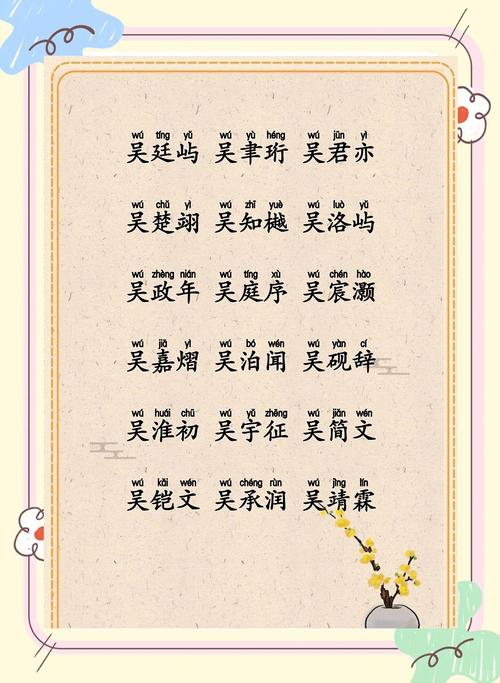 wú tíng yǔ wú yù héng wú jūn yì
吴廷屿 吴聿珩 吴君亦
wú chǔ yì wú zhī yuè wú luò yǔ
吴楚翊 吴知樾 吴洛屿
wú zhèng nián wú tíng xù wú chén hào
吴政年 吴庭序 吴宸灏
wú jiā yì wú bó wén wú yàn cí
吴嘉熠 吴泊闻 吴砚辞
wú huái chū wú yǔ zhēng wú jiǎn wén
吴淮初 吴宇征 吴简文
wú kǎi wén wú chéng rùn wú jìng lín
吴铠文 吴承润 吴靖霖